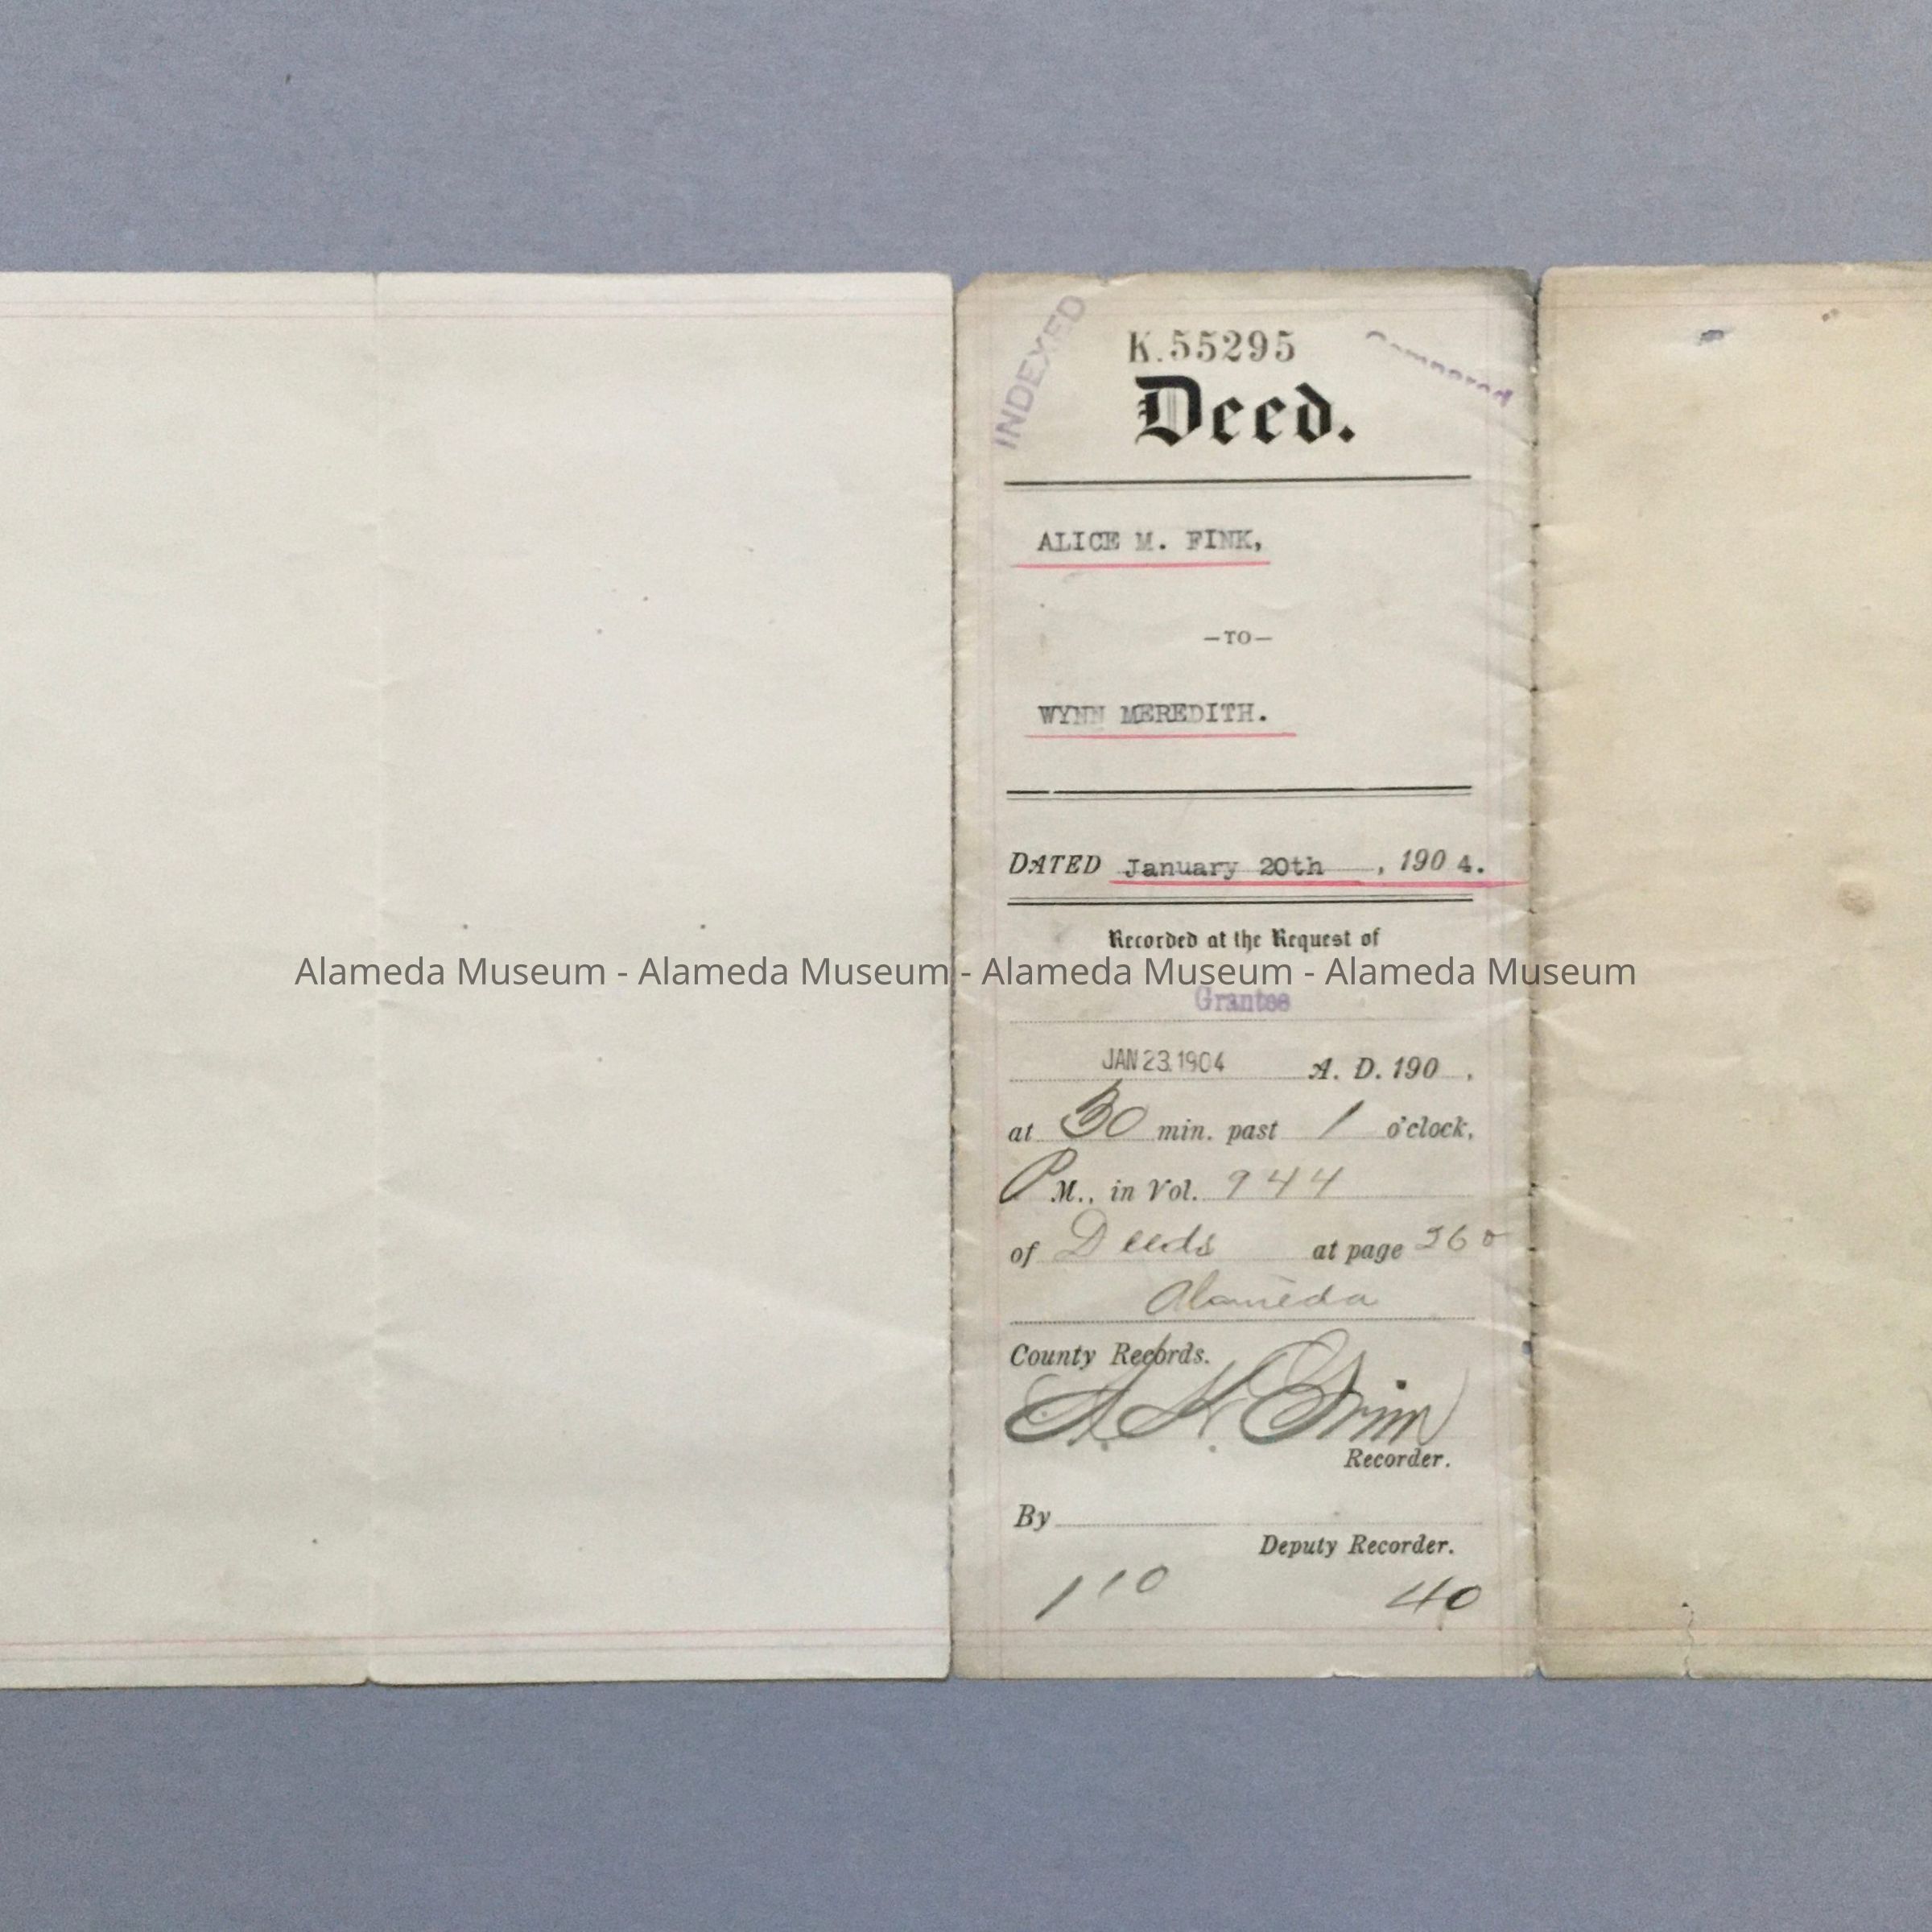 INDEXED
K.55295
Compared
Deed.
ALICE M. FINK,
—TO—
WYNN MEREDITH.
DATED January 20th, 1904.
Recorded at the Request of
Alameda Museum - Alameda Museum - Alameda Museum - Alameda Museum
Grantee
JAN 23.1904 A. D. 190 .
at 30 min. past 1 o'clock,
P M., in Vol. 944
of Deeds at page 260
Alameda
County Records.
A. K. Grim
Recorder.
By
Deputy Recorder.
110 40